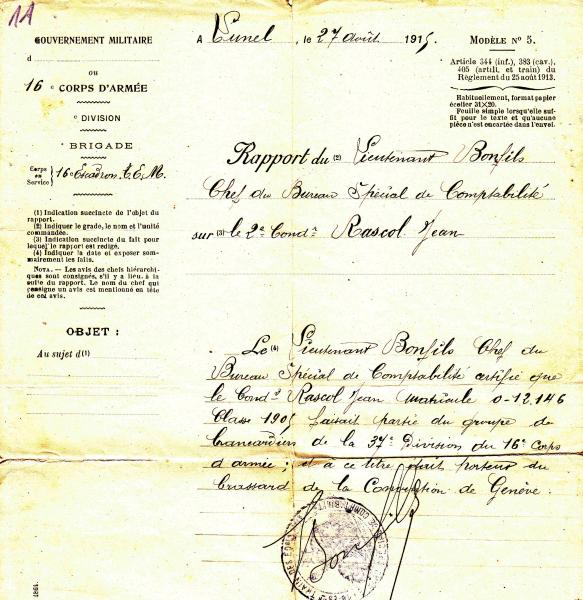 11
GOUVERNEMENT MILITAIRE
d
ou
16e CORPS D'ARMÉE
e DIVISION
BRIGADE
Corps ou Service 16e Escadron T.E.M.
(1) Indication succincte de l'objet du
rapport.
(2) Indiquer le grade, le nom et l'unité
commandée.
(3) Indication succincte du fait pour
lequel le rapport est rédigé.
(4) Indiquer la date et exposer som-
mairement les faits.
NOTA. — Les avis des chefs hiérarchi-
ques sont consignés, s'il y a lieu, à la
suite du rapport. Le nom du chef qui
consigne un avis est mentionné en tête
de cet avis.
OBJET :
Au sujet d(1)
A Lunel, le 27 août 1915
MODÈLE N° 5.
Article 344 (inf.), 383 (cav.),
405 (artill. et train) du
Règlement du 25 août 1913.
Habituellement, format papier
écolier 31×20.
Feuille simple lorsqu'elle suf-
fit pour le texte et qu'aucune
pièce n'est encartée dans l'envoi.
Rapport du (2) Lieutenant Bonfils
Chef du Bureau Spécial de Comptabilité
sur (3) le 2e Condr Rascol Jean
Le (4) Lieutenant Bonfils Chef du
Bureau Spécial de Comptabilité certifie que
le Condr Rascol Jean Matricule 0-12.146
Classe 1905 faisait partie du groupe de
brancardiers de la 37e Division du 16e Corps
d'armée ; il a ce titre était porteur du
brassard de la Convention de Genève.